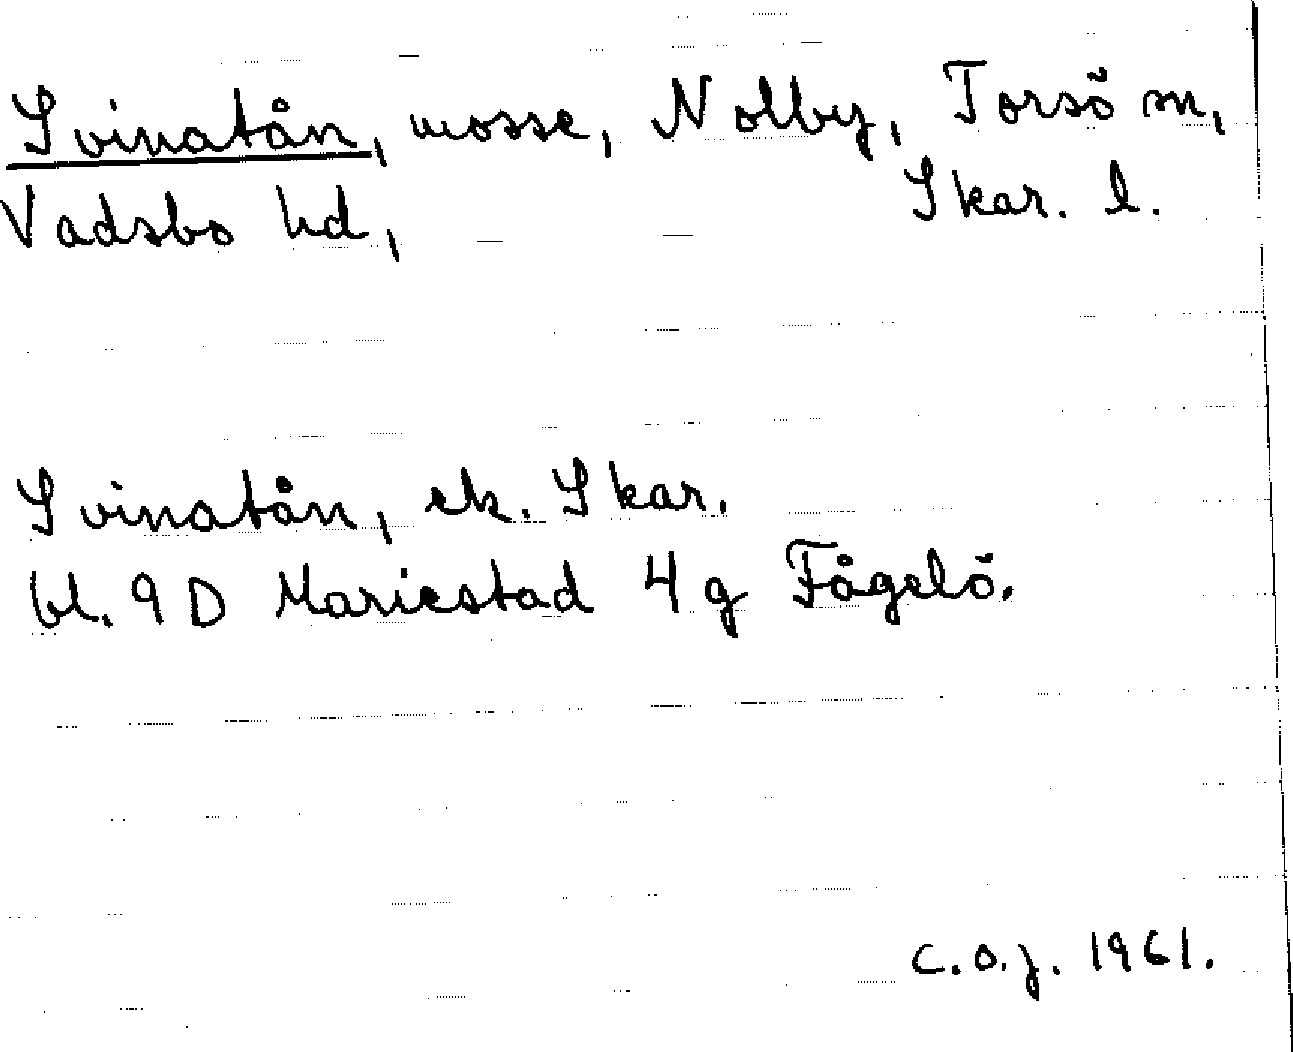 Svinatån, mosse, Nolby, Torsö sn,
Vadsbo hd, Skar. l.
Svinatån, ek. Skar.
bl. 9D Mariestad 4g Fågelö.
C.O.J. 1961.